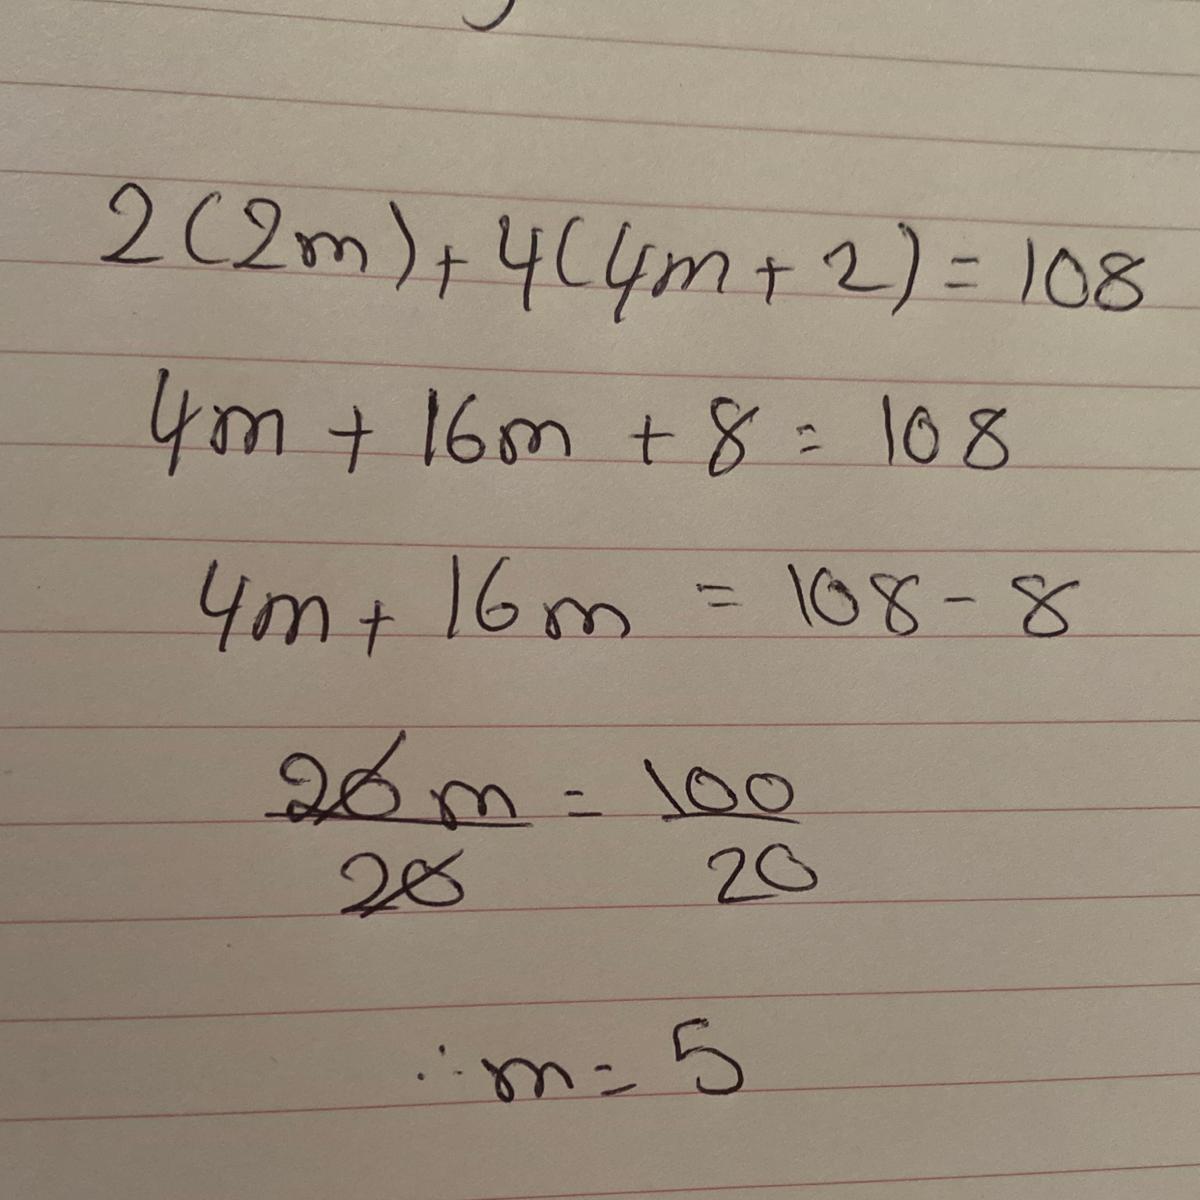 2(2m)+4(4m+2)=108
4m+16m+8=108
4m+16m=108-8
20m=100
20 20
∴m=5